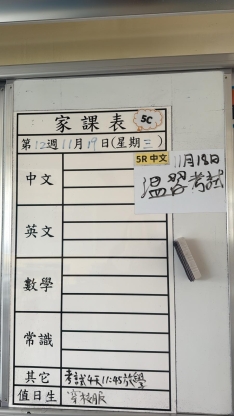 家課表 5C
第12週11月19日(星期三)
5R 中文 11月18日
溫習考試
中文
英文
數學
常識
其它 考試4天11:45放學
值日生 穿校服